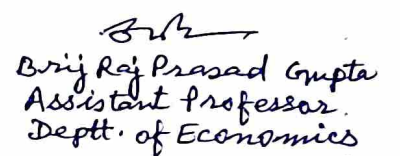 Brij Raj Prasad Gupta
Assistant Professor.
Deptt. of Economics